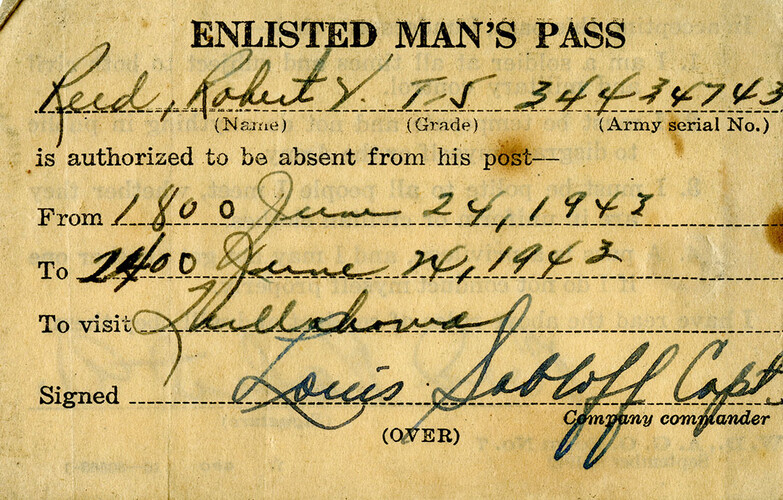 ENLISTED MAN'S PASS
Reed, Robert V. T5 34434743
(Name) (Grade) (Army serial No.)
is authorized to be absent from his post—
From 1800 June 24, 1943
To 2400 June 24, 1943
To visit Tullahoma
Signed Louis Sobloff Capt
Company commander
(OVER)